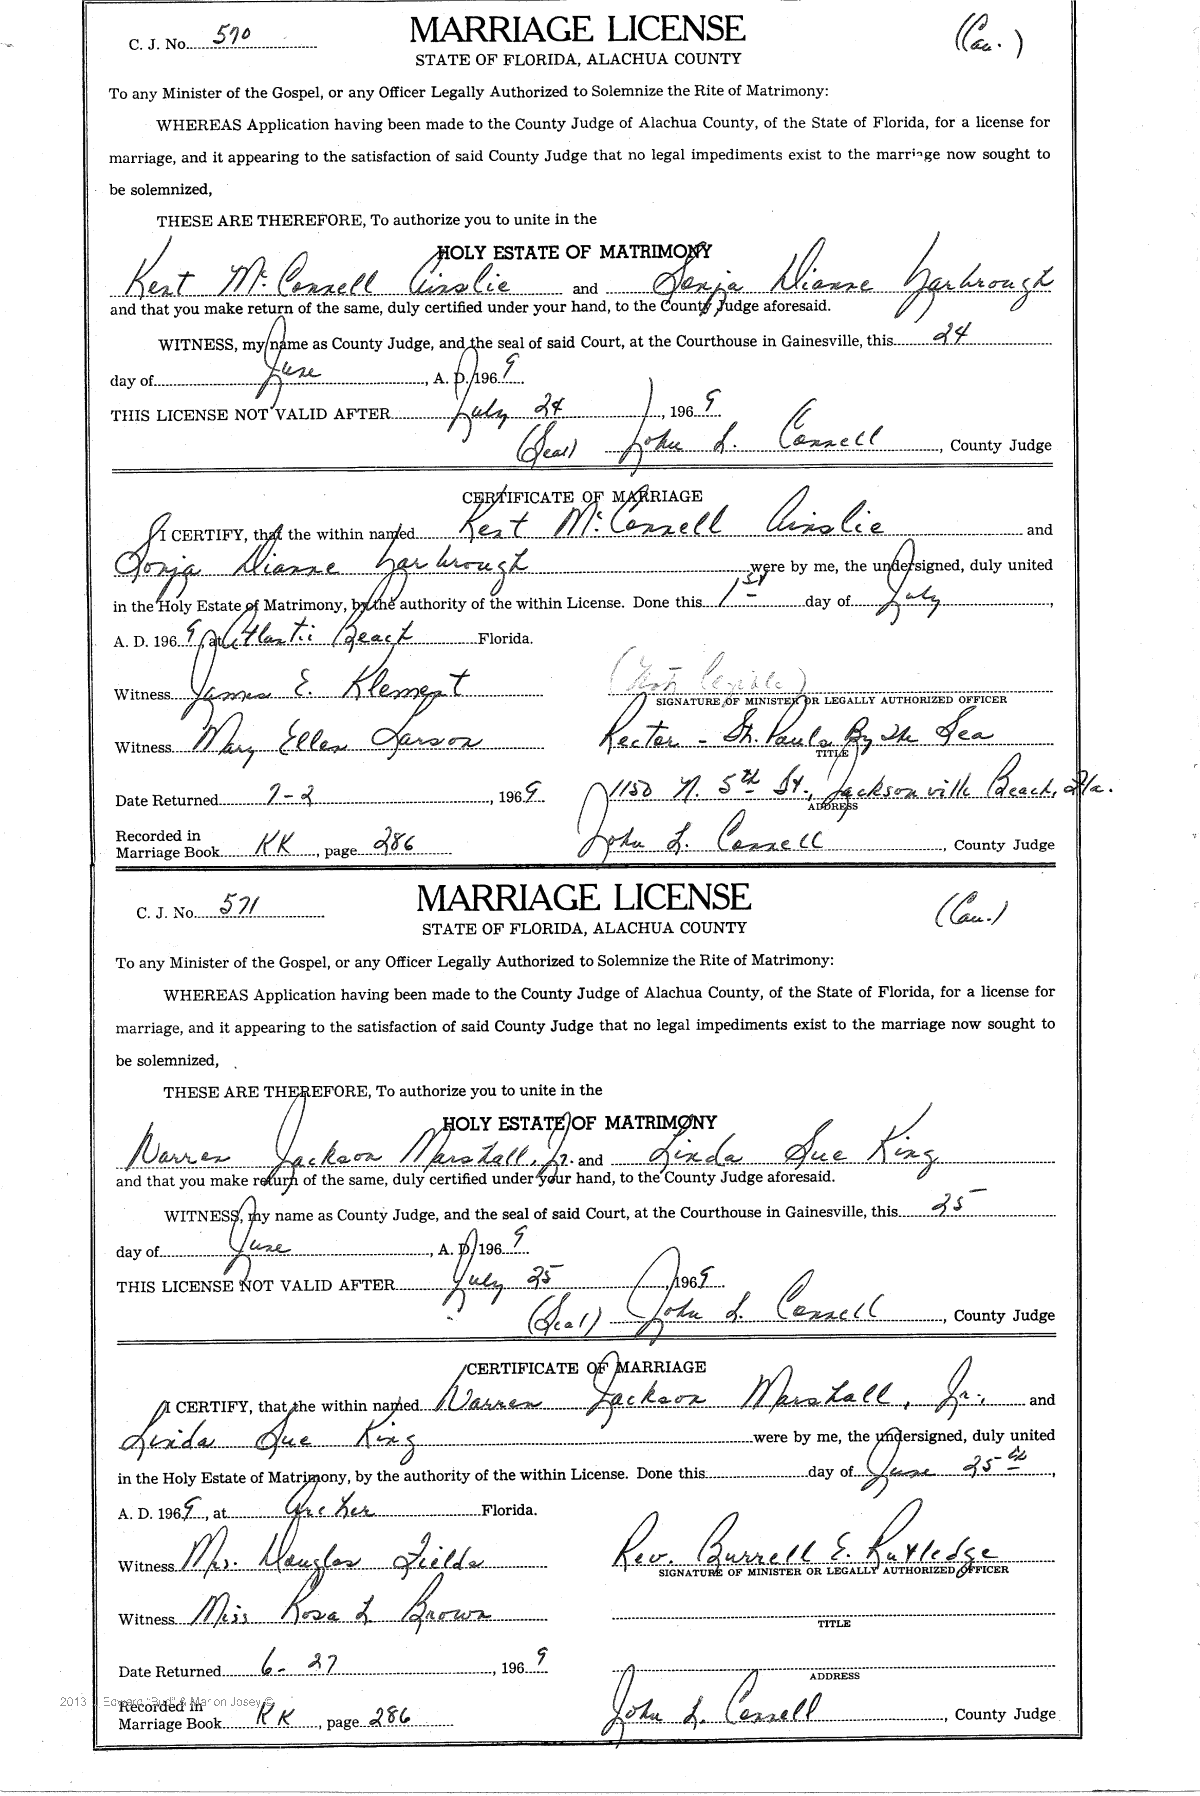 C. J. No. 570
MARRIAGE LICENSE
(Cau.)
STATE OF FLORIDA, ALACHUA COUNTY
To any Minister of the Gospel, or any Officer Legally Authorized to Solemnize the Rite of Matrimony:
WHEREAS Application having been made to the County Judge of Alachua County, of the State of Florida, for a license for
marriage, and it appearing to the satisfaction of said County Judge that no legal impediments exist to the marriage now sought to
be solemnized,
THESE ARE THEREFORE, To authorize you to unite in the
HOLY ESTATE OF MATRIMONY
Kent McConnell Ainslie and Sonja Dianne Yarbrough
and that you make return of the same, duly certified under your hand, to the County Judge aforesaid.
WITNESS, my name as County Judge, and the seal of said Court, at the Courthouse in Gainesville, this 24
day of June, A. D. 1969
THIS LICENSE NOT VALID AFTER July 24, 1969
(Seal) John L. Connell, County Judge
CERTIFICATE OF MARRIAGE
I CERTIFY, that the within named Kent McConnell Ainslie and
Sonja Dianne Yarbrough were by me, the undersigned, duly united
in the Holy Estate of Matrimony, by the authority of the within License. Done this 1st day of July,
A. D. 1969, at Atlantic Beach Florida.
Witness James E. Klement (Not Legible)
SIGNATURE OF MINISTER OR LEGALLY AUTHORIZED OFFICER
Witness Mary Ellen Larson Rector - St. Pauls By The Sea
TITLE
Date Returned 7-2, 1969 1150 N. 5th St., Jacksonville Beach, Fla.
ADDRESS
Recorded in
Marriage Book KK, page 286 John L. Connell, County Judge
C. J. No. 571
MARRIAGE LICENSE
(Cau.)
STATE OF FLORIDA, ALACHUA COUNTY
To any Minister of the Gospel, or any Officer Legally Authorized to Solemnize the Rite of Matrimony:
WHEREAS Application having been made to the County Judge of Alachua County, of the State of Florida, for a license for
marriage, and it appearing to the satisfaction of said County Judge that no legal impediments exist to the marriage now sought to
be solemnized,
THESE ARE THEREFORE, To authorize you to unite in the
HOLY ESTATE OF MATRIMONY
Warren Jackson Marshall, Jr. and Linda Sue King
and that you make return of the same, duly certified under your hand, to the County Judge aforesaid.
WITNESS, my name as County Judge, and the seal of said Court, at the Courthouse in Gainesville, this 25
day of June, A. D. 1969
THIS LICENSE NOT VALID AFTER July 25, 1969
(Seal) John L. Connell, County Judge
CERTIFICATE OF MARRIAGE
I CERTIFY, that the within named Warren Jackson Marshall, Jr., and
Linda Sue King were by me, the undersigned, duly united
in the Holy Estate of Matrimony, by the authority of the within License. Done this day of June 25th,
A. D. 1969, at Archer Florida.
Witness Mrs. Douglas Fields Rev. Burrell E. Rutledge
SIGNATURE OF MINISTER OR LEGALLY AUTHORIZED OFFICER
Witness Miss Rosa L Brown
TITLE
Date Returned 6-27, 1969
ADDRESS
2013 Edward "Bud" & Marion Josey ©
Recorded in
Marriage Book KK, page 286 John L. Connell, County Judge